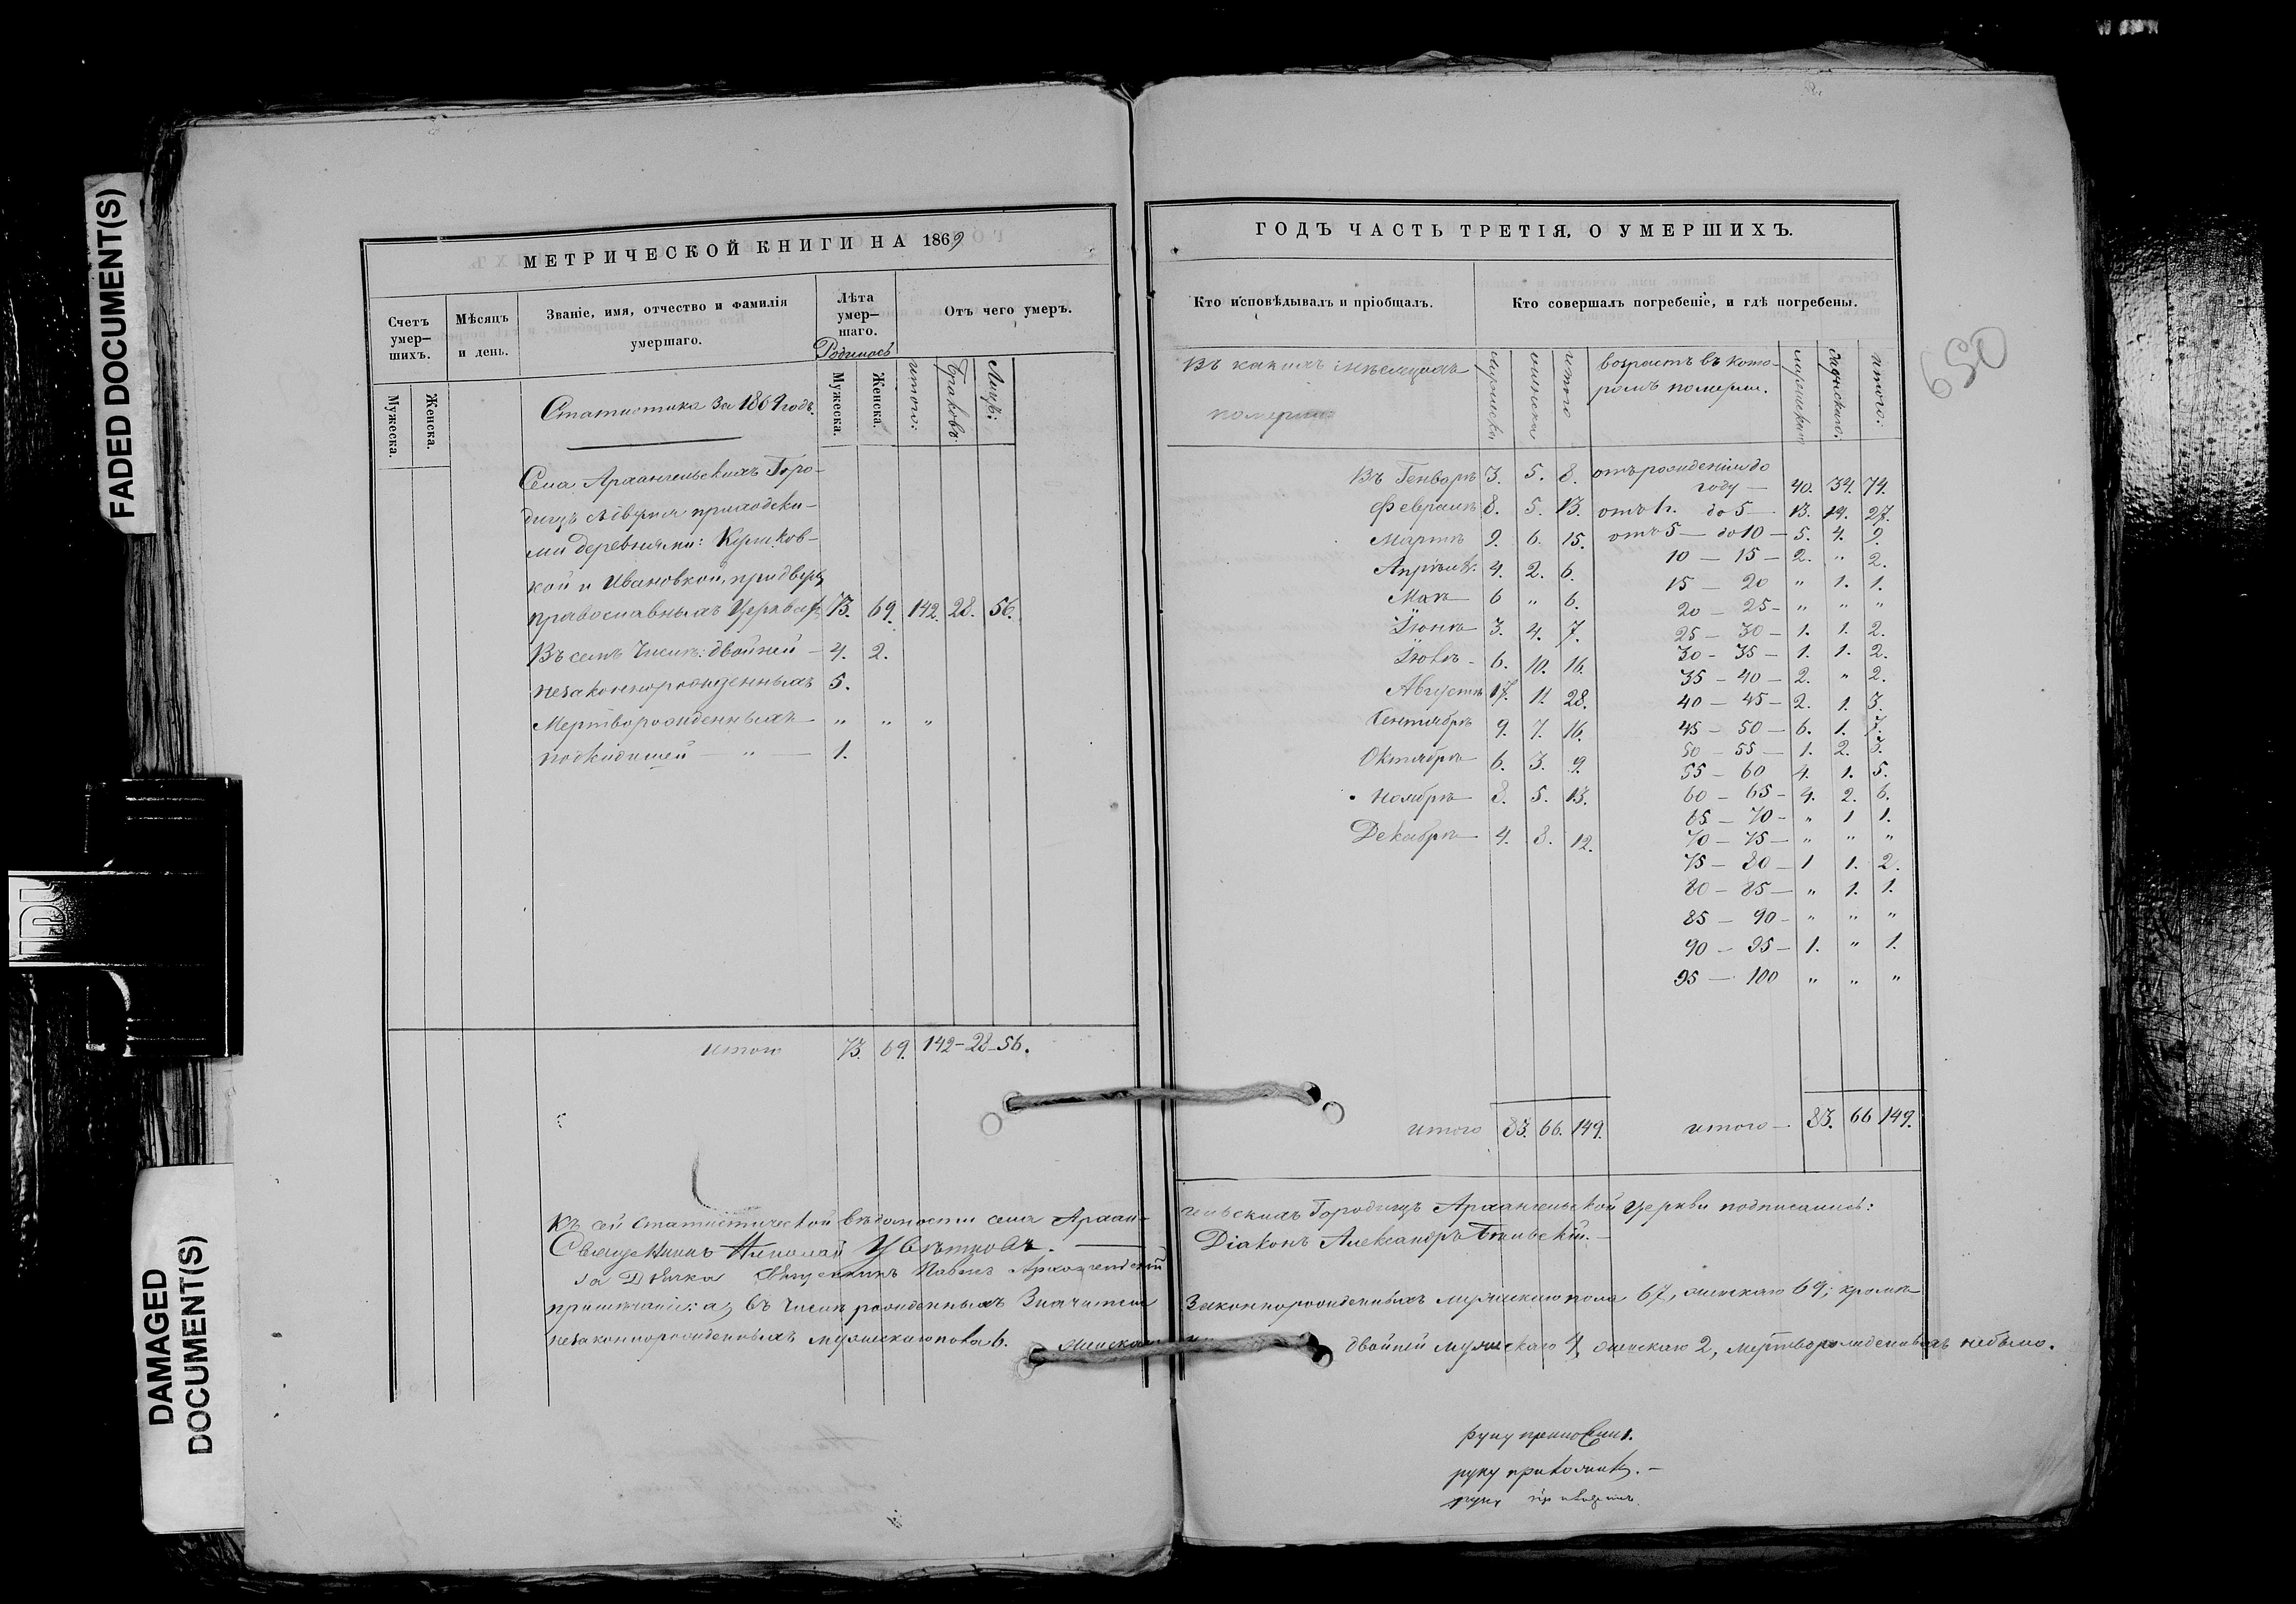 FADED DOCUMENT(S)
DAMAGED
DOCUMENT(S)
МЕТРИЧЕСКОЙ КНИГИ НА 1869
Счетъ умер-шихъ.
Мѣсяцъ и день.
Званіе, имя, отчество и фамилія умершаго.
Лѣта умер-шаго.
Родилось
Отъ чего умеръ.
Мужеска.
Женска.
Мужеска.
Женска.
итого:
Браковъ
Лицъ:
Статистика за 1869 годъ.
Села Архангельскихъ Горо-
дищъ
ми деревнями:
кой и Ивановкой, при двухъ
православныхъ Церквахъ 73. 69. 142. 28. 56.
Въ семъ числѣ: двойней — 4. 2.
незаконнорожденныхъ 5.
Мертворожденныхъ — „ „ „
подкидышей — „ — 1.
итого 73. 69. 142 - 28 - 56.
Къ сей статистической вѣдомости села Архан-
Священникъ Николай Цвѣтковъ.
за Дьячка Священникъ Павелъ
примѣчаніе: а, въ числѣ рожденныхъ значится
незаконнорожденныхъ мужескаго пола 6. женска
ГОДЪ ЧАСТЬ ТРЕТІЯ, О УМЕРШИХЪ.
Кто исповѣдывалъ и пріобщалъ.
Кто совершалъ погребеніе, и гдѣ погребены.
650
Въ какихъ мѣсяцахъ
померли
мужеска
женска
итого
возрастъ въ кото-
ромъ померли.
мужескаго
женскаго:
итого:
Въ Генварѣ 3. 5. 8.
Февралѣ 8. 5. 13.
Мартѣ 9. 6. 15.
Апрѣлѣ 4. 2. 6.
Маѣ — 6 „ 6.
Іюнѣ 3. 4. 7.
Іюлѣ - 6. 10. 16.
Августѣ 17. 11. 28.
Сентябрѣ 9. 7. 16.
Октябрѣ 6. 3. 9.
Ноябрѣ 8. 5. 13.
Декабрѣ 4. 8. 12.
отъ рожденія до
году — 40. 34. 74.
отъ 1 г. до 5 — 13. 14. 27.
отъ 5 — до 10 — 5. 4. 9.
10 — 15 — 2. „ 2.
15 — 20 „ 1. 1.
20 — 25 — „ „ „
25 — 30 — 1. 1. 2.
30 - 35 — 1. 1. 2.
35 — 40 — 2. „ 2.
40 — 45 — 2. 1. 3.
45 — 50 — 6. 1. 7.
50 — 55 — 1. 2. 3.
55 — 60 4. 1. 5.
60 — 65 - 4. 2. 6.
65 — 70 - „ 1 1.
70 — 75 — „ „ „
75 — 80 — 1 1. 2.
80 — 85 — „ 1. 1.
85 — 90 - „ „ „
90 — 95 — 1. „ 1.
95 — 100 „ „ „
итого 83. 66. 149.
итого — 83. 66 149.
гельскихъ Городищъ Архангельской Церкви подписались:
Діаконъ Александръ Бѣльскій. —
Законнорожденныхъ мужескаго пола 67, женскаго 69; кромѣ
двойней мужескаго 4, женскаго 2, мертворожденныхъ небыло.
руку приложилъ.
руку приложилъ. —
руку